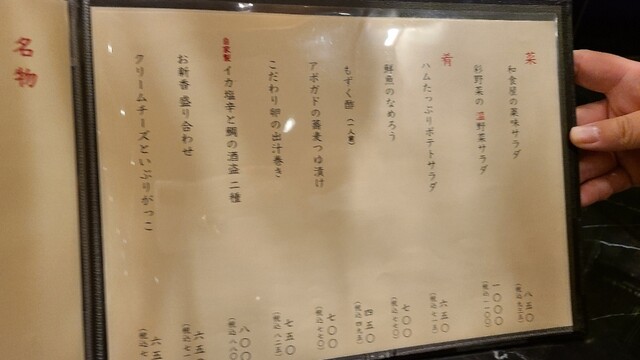 菜
和食屋の薬味サラダ
八五〇
(税込 九三五)
彩野菜の 温野菜サラダ
一〇〇〇
(税込 一一〇〇)
肴
ハムたっぷりポテトサラダ
六五〇
(税込 七一五)
鮮魚のなめろう
七〇〇
(税込 七七〇)
もずく酢 (一人前)
四五〇
(税込 四九五)
アボガドの蕎麦つゆ漬け
七〇〇
(税込 七七〇)
こだわり卵の出汁巻き
七五〇
(税込 八二五)
自家製 イカ塩辛と鯛の酒盗 二種
八〇〇
(税込 八八〇
お新香 盛り合わせ
六五
(税込 七一
クリームチーズといぶりがっこ
六五
(税込 七
名物